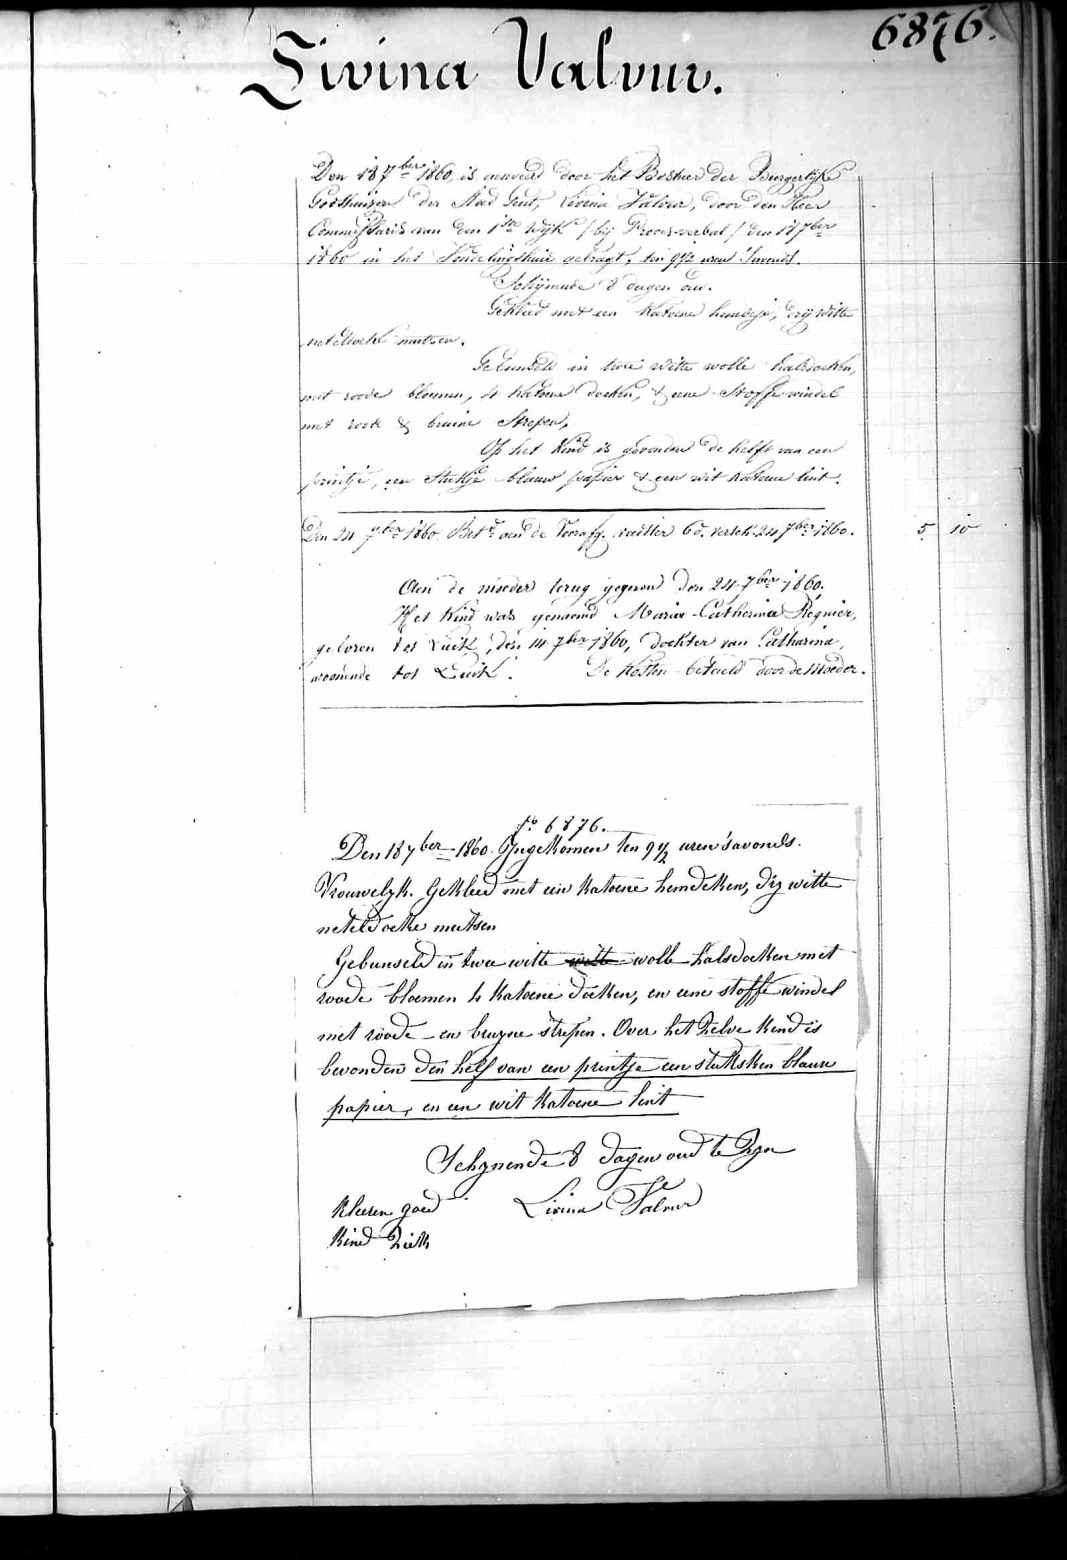 6876.
Livina Valvur.
Den 18 7ber 1860, is aenveerd door het Bestuer der Burgerlijke
Godshuizen der Stad Gent, Livina Valvur, door den Heer
Commissaris van den 1ste Wyk / bij Proces-verbal / den 18 7ber
1860 in het Vondelingshuis gebragt, ten 9 1/2 uren 's avonds.
Schijnende 8 dagen oud.
Gekleed met een katoene hemdeje, drij witte
neteldoeke mutsen.
Gebunseld in twee witte wolle halsdoeken,
met roode bloemen, 4 katoene doeken, & eene Stoffe windel
met roode & bruine Strepen,
Op het Kind is gevonden de helft van een
printje, een Stukje blauw papier & een wit katoene lint.
Den 24 7ber 1860 Bet. aen de 6 d. 24 7ber 1860. 5 10
Aen de moeder terug gegeven den 24 7ber 1860.
Het Kind was genaemd Maria-Catherina Régnier,
geboren tot Luik, den 14 7ber 1860, dochter van Catharina,
woonende tot Luik. De kosten betaeld door de Moeder.
fo. 6876.
Den 18 7ber 1860. Ingekomen ten 9 1/2 uren 'savonds.
Vrouwelyk. Gekleed met een katoene hemdeken, dry witte
neteldoeke mutsen
Gebunseld in twee witte witte wolle halsdoeken met
roode bloemen 4 katoene doeken, en eene stoffe windel
met roode en bruyne strepen. Over het Zelve Kend is
bevonden den helf van een printje een stuksken blauw
papier, en een wit katoene lint
Schynende 8 dagen oud te Zyn
Kleeren goed Livina Valvur
Kind Ziek